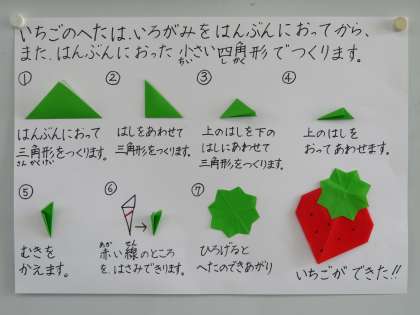 いちごのへたは、いろがみをはんぶんにおってから、
また、はんぶんにおった 小さい四角形でつくります。
ちい しかく
① ② ③ ④
はんぶんにおって
三角形をつくります。
さんかくけい
はしをあわせて
三角形をつくります。
上のはしを下の
はしにあわせて
三角形をつくります。
上のはしを
おってあわせます。
⑤ ⑥ ⑦
むきを
かえます。
あか せん
赤い線のところ
を、はさみできります。
ひろげると
へたのできあがり
いちごができた!!